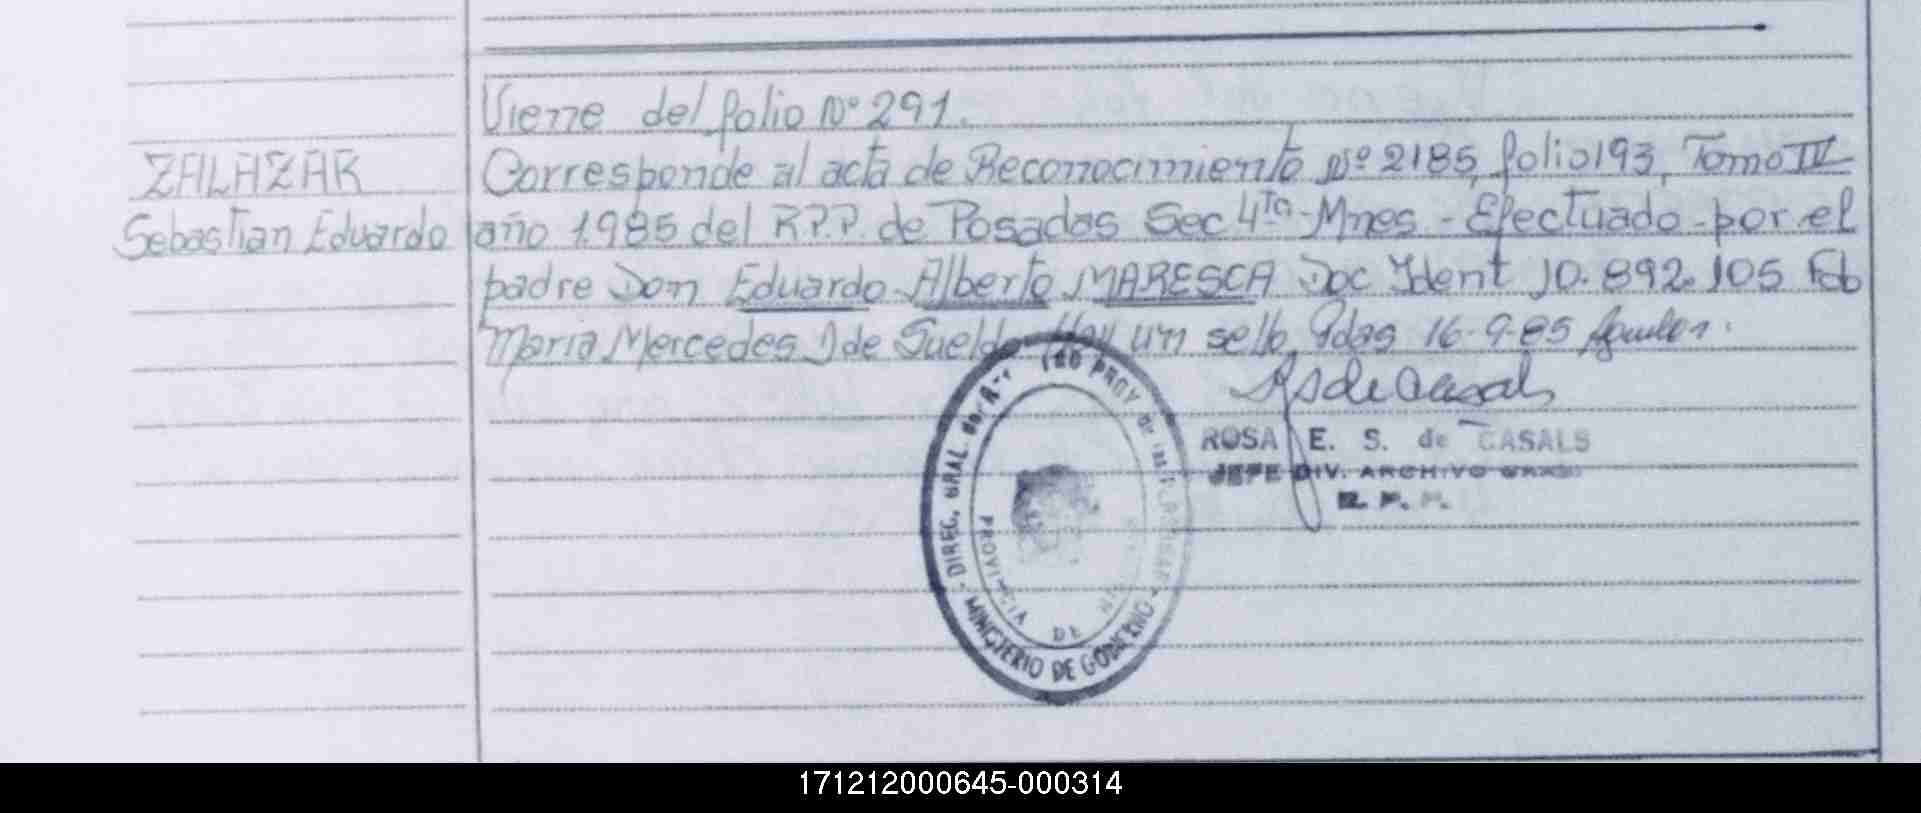 Viene del folio Nº 291.
ZALAZAR
Sebastian Eduardo
Corresponde al acta de Reconocimiento Nº 2185, folio 193, Tomo IV
año 1.985 del R.P.P. de Posadas Sec 4ta - Mnes - Efectuado por el
padre Don Eduardo Alberto MARESCA Doc Ident 10.892.105 Fdo
Maria Mercedes I de Sueldo Hay un sello Pdas 16-9-85
ROSA E. S. de CASALS
JEFE DIV. ARCHIVO GRAL
R. P. P.
DIREC. GRAL. del PROV de las
MINISTERIO DE GOBIERNO
PROVINCIA DE
171212000645-000314